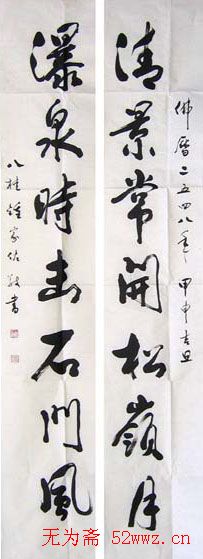 佛曆二五四八年 甲申吉旦
清景常開松嶺月
瀑泉時石門風
八桂鍾家佐敬書
无为斋 52wwz.cn